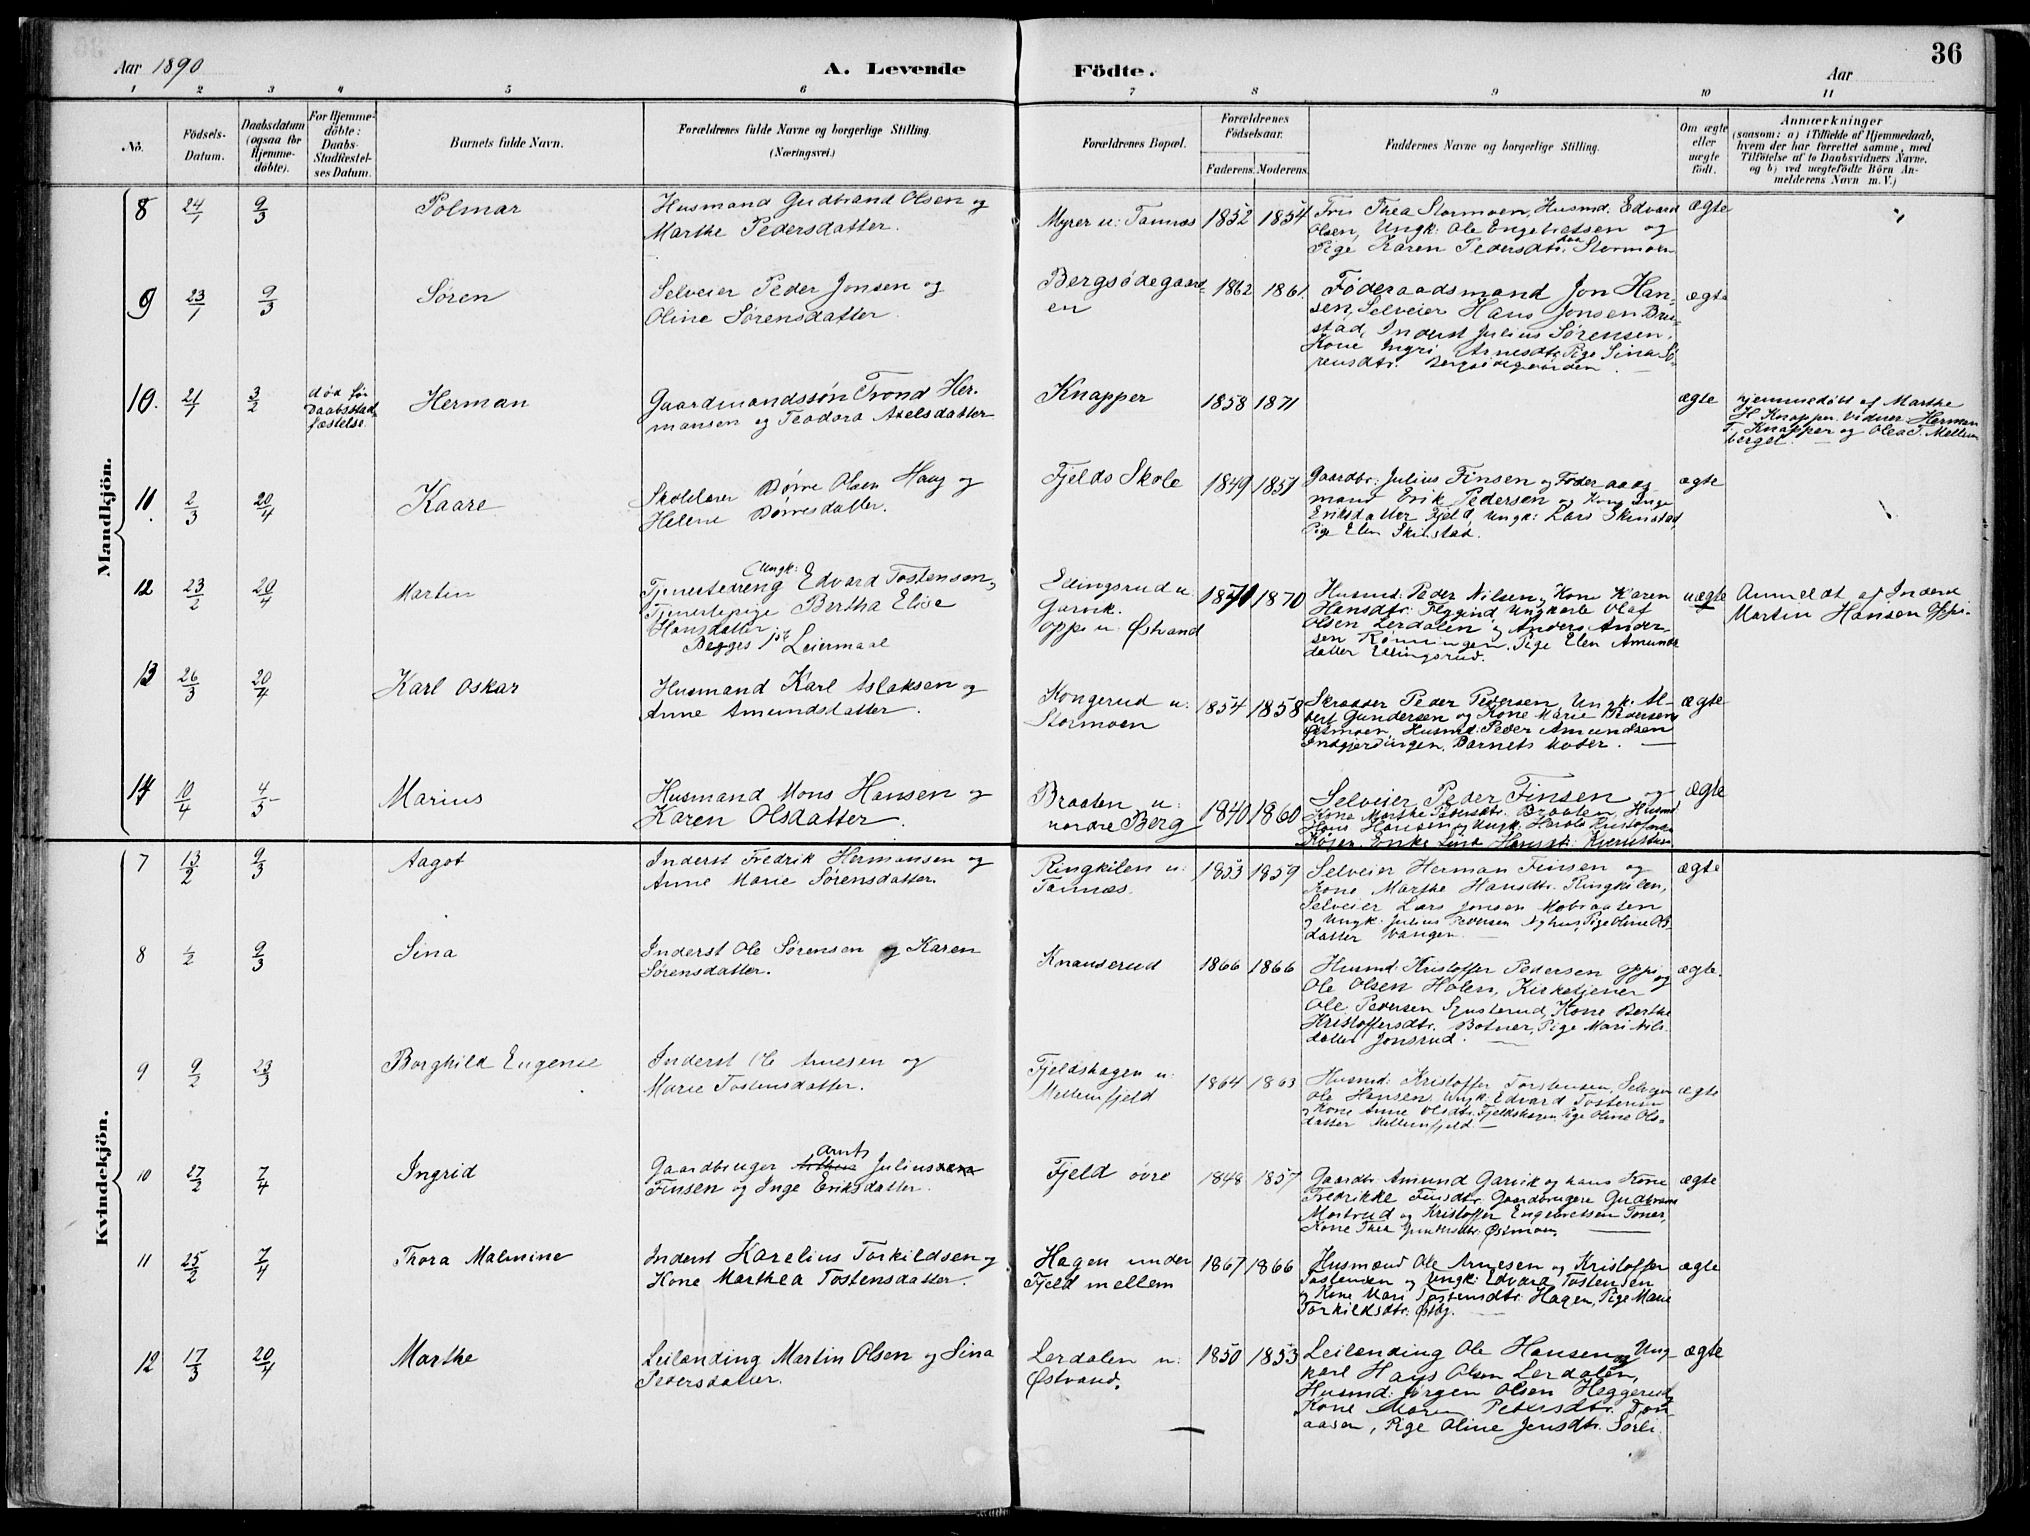 36
Aar 1890
A. Levende Födte.
Aar
1 2 3 4 5 6 7 8 9 10 11
No.
Födsels-
Datum.
Daabsdatum
(ogsaa for
Hjemme-
döbte).
For Hjemme-
döbte:
Daabs-
Stadfæstel-
ses Datum.
Barnets fulde Navn.
Forældrenes fulde Navne og borgerlige Stilling.
(Næringsvei.)
Forældrenes Bopæl.
Forældrenes
Födselsaar.
Faderens. Moderens.
Faddernes Navne og borgerlige Stilling.
Om ægte
eller
uægte
født.
Anmærkninger
(saasom: a) i Tilfælde af Hjemmedaab,
hvem der har forrettet samme, med
Tilföielse af to Daabsvidners Navne.
og b) ved uægtefödte Börn An-
melderens Navn m. V.)
Mandkjön.
8 24/1 9/3 Polmar
Husmand Gudbrand Olsen og
Marthe Pedersdatter.
Myrer u: Tannæs 1852 1854
Fru Thea Stormoen, Husmd. Edvard
Olsen, Ungk: Ole Engebretsen og
Pige Karen Pedersdtr. Stormoen
ægte
9 23/1 9/3 Søren
Selveier Peder Jonsen og
Oline Sørensdatter.
Bergsødegaard-
en
1862 1861.
Føderaadsmand Jon Han-
sen, Selveier Hans Jonsen Bru-
stad, Inderst Julius Sørensen,
Kone Ingri Arnesdtr. Pige Sina Sø-
rensdtr. Bergsødegaarden.
ægte
10. 21/1 3/2
død før
Daabsstad-
fæstelse.
Herman
Gaardmandssøn Trond Her-
mansen og Teodora Axelsdatter
Knapper 1858 1871 ægte
Hjemmedøbt af Marthe
H. Knapper. Vidner Herman
T. Knapper og Olea T. Mellem-
berget.
11. 2/3 20/4 Kaare
Skolelærer Børre Olsen Haug og
Helene Børresdatter.
Fjelds Skole 1849 1857
Gaardbr. Julius Finsen og Føderaads-
mand Erik Pedersen og Kone Inge
Eriksdatter Fjeld, Ungk: Lars Skinstad,
Pige Elen Skinstad.
ægte
12 23/2 20/4 Martin
(Ungk:
Tjenestedreng Edvard Tostensen,
Tjenestepige Bertha Elise
Hansdatter.
Begges 1ste Leiermaal
Elingsrud u:
Garvik.
Oppi u: Østvand
1870 1870
Husmd. Peder Nilsen, Kone Karen
Hansdtr. Flygind, Ungkarle Olaf
Olsen Lerdalen og Anders Ander-
sen Rønningen. Pige Elen Amunds-
datter Ellingsrud.
uægte
Anmeldt af Inderst
Martin Hansen Oppi.
13 26/3 20/4 Karl Oskar
Husmand Karl Aslaksen og
Anne Amundsdatter.
Kongerud u:
Stormoen
1854 1858
Skrædder Peder Pedersen, Ungk: Al-
bert Gundersen og Kone Marie Pedersen
Østmoen, Husmd: Peder Amundsen
Indgjerdingen, Barnets Moder.
ægte
14 10/4 4/5 Marius
Husmand Mons Hansen og
Karen Olsdatter.
Braaten u:
nordre Berg
1840 1860
Selveier Peder Finsen og
Kone Marthe Pedersdtr. Braaten, Husmd
Hans Hansen og Ungk: Harald Kristofersen
Enke Lina Hansdtr.
ægte
Kvindekjön.
7 13/2 9/3 Aagot
Inderst Fredrik Hermansen og
Anne Marie Sørensdatter.
Ringkilen u:
Tannæs.
1853 1859
Selveier Herman Finsen og
Kone Marthe Hansdtr. Ringkilen,
Selveier Lars Jonsen Mobraaten
og Ungk: Julius Pedersen Nyhus, Pige Oline Ols-
datter Vangen
ægte
8 1/2 9/3 Sina
Inderst Ole Sørensen og Karen
Sørensdatter.
Knauserud 1866 1866
Husmd: Kristoffer Pedersen Oppi og
Ole Olsen Holen, Kirketjener
Ole Pedersen Synsterud, Kone Berthe
Kristoffersdtr. Botner, Pige Mari Nils-
datter Jonsrud.
ægte.
9 9/2 23/3 Borghild Eugenie
Inderst Ole Arnesen og
Marie Tostensdatter.
Fjeldshagen u:
Mellemfjeld
1864 1863
Husmd: Kristoffer Torstensen, Selveier
Ole Hansen, Ungk: Edvard Tostensen
og Kone Anne Olsdtr. Fjeldshagen, Pige Oline Ols-
datter Mellemfjeld.
ægte
10 27/2 7/4 Ingrid
Arnts
Gaardbruger Julius
Finsen og Inge Eriksdatter.
Fjeld øvre 1848 1857
Gaardbr. Amund Garvik og hans Kone
Fredrikke Finsdtr. Gaardbrugere Gudbrand
Mostrud og Kristoffer Engebretsen Toner,
Kone Thea Gundersdtr. Østmoen.
ægte
11 25/2 7/4 Thora Malmine
Inderst Karelius Torkildsen og
Kone Marthea Tostensdatter.
Hagen under
Fjeld mellem
1867 1866
Husmænd Ole Arnesen og Kristoffer
Tostensen og Ungk: Edvard Tostensen
og Kone Mari Tostensdtr. Hagen, Pige Marie
Torkildsdtr. Østby.
ægte
12 17/3 20/4 Marthe
Leilænding Martin Olsen og Sina
Pedersdatter.
Lerdalen u:
Østvand.
1850 1853
Leilænding Ole Hansen og Ung-
karl Hans Olsen Lerdalen,
Husmd: Jørgen Olsen Heggerud,
Kone Maren Petersdtr. Ton-
aasen, Pige Oline Jensdtr. Sørli
ægte